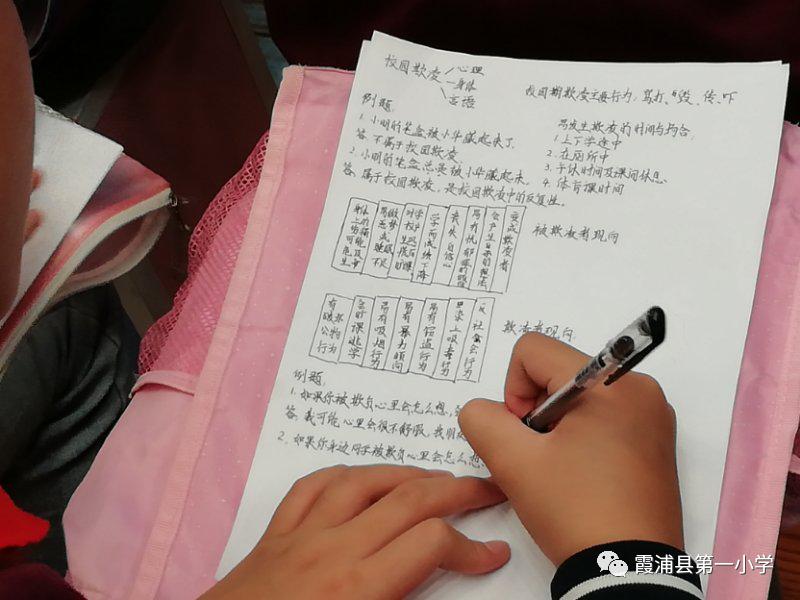 校园欺凌 心理
身体
言语
校园期欺凌主要行为：骂、打、毁、传、吓
例题：
1. 小明的笔盒被小华藏起来了.
答：不属于校园欺凌.
2. 小明的笔盒总是被小华藏起来.
答：属于校园欺凌，是校园欺凌中的反复性。
易发生欺凌的时间与场合：
1. 上下学途中
2. 在厕所中
3. 午休时间及课间休息
4. 体育课时间
身体上的伤痛可能危及生命
易做噩梦或睡眠不足
对学校产生
学习成绩下降
丧失自信心
易有忧郁
会产生自杀的想法
变成欺凌者
被欺凌者现向
有破坏公物行为
会时课逃学
易有吸烟行为
易有暴力倾向
易有偷盗行为
易染上吸毒行为
反社会行为
欺凌者现向
例题：
1. 如果你被欺负心里会怎么想，
答：我可能心里会很不舒服，我
2. 如果你身边同学被欺负心里会怎么想.
霞浦县第一小学